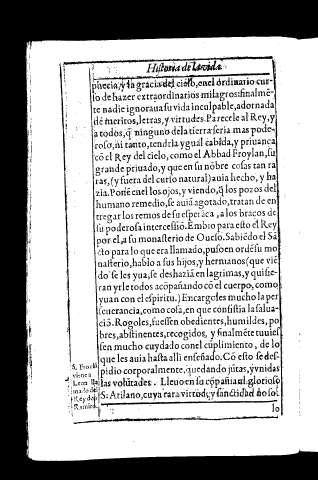 Historia de la vida
phecia, y la gracia del cielo, en el ordinario cur-
so de hazer extraordinarios milagros: finalmẽ-
te nadie ignoraua su vida inculpable, adornada
dé meritos, letras, y virtudes. Parecele al Rey, y
a todos, q̃ ninguno dela tierra seria mas pode-
roso, ni tanto, tendria ygual cabida, y priuança
cõ el Rey del cielo, como el Abbad Froylan, su
grande priuado, y que en su nõbre cosas tan ra
ras, (y fuera del curso natural) auia hecho, y ha
zia. Ponẽ en el los ojos, y viendo, q̃ los pozos del
humano remedio, se auiã agotado, tratan de en
tregar los remos de su esperãça, a los braços de
su poderosa intercessiõ. Embio para esto el Rey
por el, a su monasterio de Oueso. Sabiẽdo el Sã
cto para lo que era llamado, puso en ordẽ su mo
nasterio, hablo a sus hijos, y hermanos (que viẽ
do se les yua, se deshaziã en lagrimas, y quisie-
ran yrle todos acõpañando cõ el cuerpo, como
yuan con el espiritu.) Encargoles mucho la per
seuerancia, como cosa, en que consistia la salua-
ciõ. Rogoles, fuessen obedientes, humildes, po
bres, abstinentes, recogidos, y finalmẽte tuuies
sen mucho cuydado con el cũplimiento, de lo
que les auia hasta alli enseñado. Cõ esto se des-
pidio corporalmente, quedando jũtas, y vnidas
las volũtades. Lleuo en su cõpañia al glorioso
S: Atilano, cuya rara virtud, y sanctidad no sol
lo
S. Froilã
viene a
Leon lla
mado del
Rey dõ
Ramiro